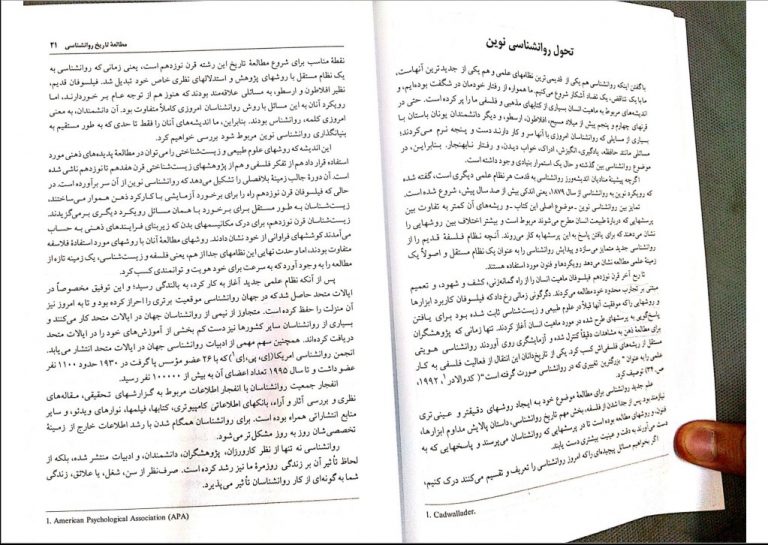 تحول روانشناسی نوین
باگفتن اینکه روانشناسی هم یکی از قدیمی‌ترین نظامهای علمی و هم یکی از جدیدترین آنهاست،
ما با یک تناقض، یک تضاد آشکار شروع می‌کنیم. ما همواره از رفتار خودمان در شگفت بوده‌ایم، و
اندیشه‌های مربوط به ماهیت انسان بسیاری از کتابهای مذهبی و فلسفی ما را پر کرده است. حتی در
قرنهای چهارم و پنجم پیش از میلاد مسیح، افلاطون، ارسطو، و دیگر دانشمندان یونان باستان با
بسیاری از مسائلی که روانشناسان امروزی با آنها سر و کار دارند دست و پنجه نرم می‌کردند؛
مسائلی مانند حافظه، یادگیری، انگیزش، ادراک، خواب دیدن، و رفتار نابهنجار. بنابراین، در
موضوع روانشناسی بین گذشته و حال یک استمرار بنیادی وجود داشته است.
اگرچه پیشینهٔ منادیان اندیشه‌ورز روانشناسی به قدمت هر نظام علمی دیگری است، گفته شده
که رویکرد نوین به روانشناسی از سال ۱۸۷۹، یعنی اندکی بیش از صد سال پیش، شروع شده است.
تمایز بین روانشناسی نوین ـ موضوع اصلی این کتاب ـ و ریشه‌های آن کمتر به تفاوت بین
پرسشهایی که دربارهٔ طبیعت انسان مطرح می‌شوند مربوط است و بیشتر اختلاف بین روشهایی را
نشان می‌دهند که برای یافتن پاسخ به این پرسشها به کار می‌روند. آنچه نظام فلسفهٔ قدیم را از
روانشناسی جدید متمایز می‌سازد و پیدایش روانشناسی را به عنوان یک نظام مستقل و اصولاً یک
زمینهٔ علمی مطالعه نشان می‌دهد رویکردها و فنون مورد استفاده هستند.
تا ربع آخر قرن نوزدهم، فیلسوفان ماهیت انسان را از راه گمانه‌زنی، کشف و شهود، و تعمیم
مبتنی بر تجارب محدود خود مطالعه می‌کردند. دگرگونی زمانی رخ داد که فیلسوفان کاربرد ابزارها
و روشهایی را که موفقیت آنها قبلاً در علوم طبیعی و زیست‌شناسی ثابت شده بود برای یافتن
پاسخ‌گویی به پرسشهای طرح شده در مورد ماهیت انسان آغاز کردند. تنها زمانی که پژوهشگران
برای مطالعهٔ ذهن به مشاهدات دقیقاً کنترل شده و آزمایشگری روی آوردند روانشناسی هویتی
مستقل از ریشه‌های فلسفی‌اش کسب کرد. یکی از تاریخ‌دانان این انتقال از فعالیت فلسفی به کار
علمی را به عنوان " بزرگترین تغییری که در روانشناسی صورت گرفته است"( کدوالادر۱، ۱۹۹۲،
ص، ۱۳۴) توصیف کرد.
علم جدید روانشناسی برای مطالعهٔ موضوع خود به ایجاد روشهای دقیقتر و عینی‌تری
نیازمند بود. پس از جدا شدن از فلسفه، بخش مهم تاریخ روانشناسی، داستان پالایش مداوم ابزارها،
فنون و روشهای مطالعه بوده است تا در پرسشهایی که روانشناسان می‌پرسند و پاسخهایی که به
دست می‌آورند به دقت و عینیت بیشتری دست یابند.
اگر بخواهیم مسائل پیچیده‌ای را که امروز روانشناسی را تعریف و تقسیم می‌کنند درک کنیم،
1. Cadwallader.
مطالعهٔ تاریخ روانشناسی ۲۱
نقطهٔ مناسب برای شروع مطالعهٔ تاریخ این رشته قرن نوزدهم است، یعنی زمانی که روانشناسی به
یک نظام مستقل با روشهای پژوهش و استدلالهای نظری خاص خود تبدیل شد. فیلسوفان قدیم،
نظیر افلاطون و ارسطو، به مسائلی علاقه‌مند بودند که هنوز هم از توجه عام برخوردارند، اما
رویکرد آنان به این مسائل با روش روانشناسان امروزی کاملاً متفاوت بود. آن دانشمندان، به معنی
امروزی کلمه، روانشناس نبودند. بنابراین، ما اندیشه‌های آنان را فقط تا حدی که به طور مستقیم به
بنیانگذاری روانشناسی نوین مربوط شود بررسی خواهیم کرد.
این اندیشه که روشهای علوم طبیعی و زیست‌شناختی را می‌توان در مطالعهٔ پدیده‌های ذهنی مورد
استفاده قرار داد هم از تفکر فلسفی و هم از پژوهشهای زیست‌شناختی قرن هفدهم تا نوزدهم ناشی شده
است. آن دورهٔ جالب زمینهٔ بلافصلی را تشکیل می‌دهد که روانشناسی نوین از آن سر برآورده است. در
حالی که فیلسوفان قرن نوزدهم راه را برای برخورد آزمایشی با کارکرد ذهن هموار می‌ساختند،
زیست‌شناسان به طور مستقل برای برخورد با همان مسائل رویکرد دیگری برمی‌گزیدند.
زیست‌شناسان قرن نوزدهم، برای درک مکانیسمهای بدن که زیربنای فرایندهای ذهنی به حساب
می‌آمدند کوششهای فراوانی از خود نشان دادند. روشهای مطالعهٔ آنان با روشهای مورد استفادهٔ فلاسفه
متفاوت بودند، اما وحدت نهایی این نظامهای جدا از هم، یعنی فلسفه و زیست‌شناسی، یک زمینه تازه از
مطالعه را به وجود آورد که به سرعت برای خود هویت و توانمندی کسب کرد.
پس از آنکه نظام علمی جدید آغاز به کار کرد، به بالندگی رسید؛ و این توفیق مخصوصاً در
ایالات متحد حاصل شد که در جهان روانشناسی موقعیت برتری را احراز کرده بود و تا به امروز نیز
آن منزلت را حفظ کرده است. متجاوز از نیمی از روانشناسان جهان در ایالات متحد کار می‌کنند و
بسیاری از روانشناسان سایر کشورها نیز دست کم بخشی از آموزش‌های خود را در ایالات متحد
دریافت کرده‌اند. همچنین سهم مهمی از ادبیات روانشناسی جهان در ایالات متحد انتشار می‌یابد.
انجمن روانشناسی امریکا(اِی، پی، اِی۱) که با ۲۶ عضو مؤسس پا گرفت در ۱۹۳۰ حدود ۱۱۰۰ نفر
عضو داشت و تا سال ۱۹۹۵ تعداد اعضای آن به بیش از ۱۰۰۰۰۰ نفر رسید.
انفجار جمعیت روانشناسان با انفجار اطلاعات مربوط به گزارشهای تحقیقی، مقاله‌های
نظری و بررسی آثار و آراء، بانکهای اطلاعاتی کامپیوتری، کتابها، فیلمها، نوارهای ویدئو، و سایر
منابع انتشاراتی همراه بوده است. برای روانشناسان همگام شدن با رشد اطلاعات خارج از زمینهٔ
تخصصی‌شان روز به روز مشکل‌تر می‌شود.
روانشناسی نه تنها از نظر کارورزان، پژوهشگران، دانشمندان، و ادبیات منتشر شده، بلکه از
لحاظ تأثیر آن بر زندگی روزمرهٔ ما نیز رشد کرده است. صرف‌نظر از سن، شغل، یا علائق، زندگی
شما به گونه‌ای از کار روانشناسان تأثیر می‌پذیرد.
1. American Psychological Association (APA)